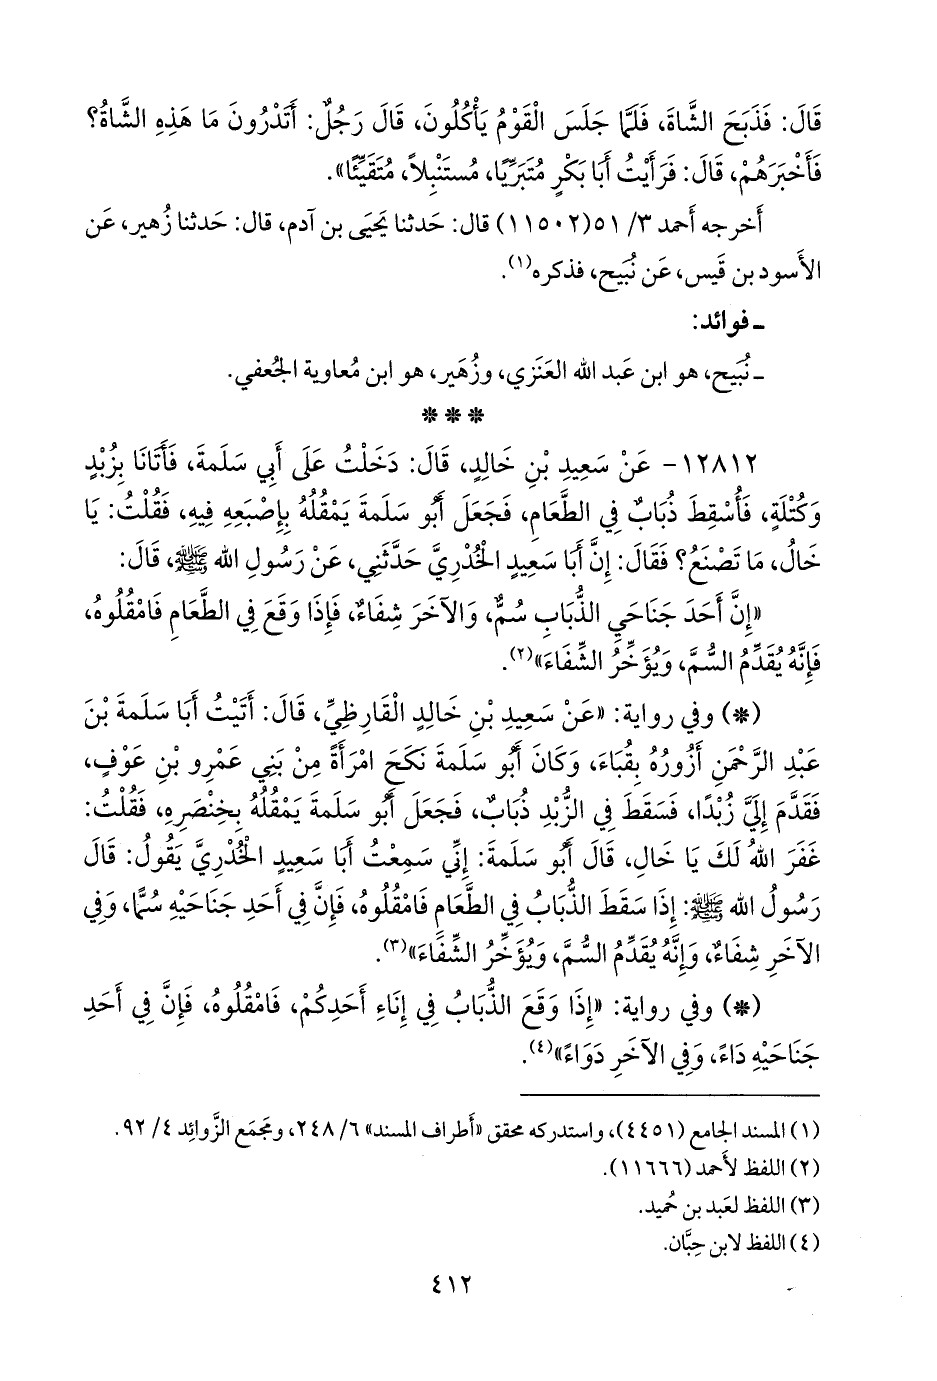 قَالَ: فَذَبَحَ الشَّاةَ، فَلَمَّا جَلَسَ الْقَوْمُ يَأْكُلُونَ، قَالَ رَجُلٌ: أَتَدْرُونَ مَا هَذِهِ الشَّاةُ؟
فَأَخْبَرَهُمْ، قَالَ: فَرَأَيْتُ أَبَا بَكْرٍ مُتَبَرِّيًا، مُسْتَنْبِلاً، مُتَقَيِّئًا».
أَخرجه أَحمد ٣/ ٥١(١١٥٠٢) قال: حَدثنا يَحيَى بن آدم، قال: حَدثنا زُهير، عَن
الأَسود بن قَيس، عَن نُبَيح، فذكره(١).
ـ فوائد:
ـ نُبَيح، هو ابن عَبد الله العَنَزي، وزُهَير، هو ابن مُعاوية الجُعفي.
***
١٢٨١٢- عَنْ سَعِيدِ بْنِ خَالِدٍ، قَالَ: دَخَلْتُ عَلَى أَبِي سَلَمةَ، فَأَتَانَا بِزُبْدٍ
وَكُتْلَةٍ، فَأُسْقِطَ ذُبَابٌ فِي الطَّعَامِ، فَجَعَلَ أَبُو سَلَمةَ يَمْقُلُهُ بِإِصْبَعِهِ فِيهِ، فَقُلْتُ: يَا
خَالُ، مَا تَصْنَعُ؟ فَقَالَ: إِنَّ أَبَا سَعِيدٍ الْخُدْرِيَّ حَدَّثَنِي، عَنْ رَسُولِ الله ﷺ، قَالَ:
«إِنَّ أَحَدَ جَنَاحَيِ الذُّبَابِ سُمٌّ، وَالآخَرَ شِفَاءٌ، فَإِذَا وَقَعَ فِي الطَّعَامِ فَامْقُلُوهُ،
فَإِنَّهُ يُقَدِّمُ السُّمَّ، وَيُؤَخِّرُ الشِّفَاءَ»(٢).
(*) وفي رواية: «عَنْ سَعِيدِ بْنِ خَالِدٍ الْقَارِظِيِّ، قَالَ: أَتَيْتُ أَبَا سَلَمةَ بْنَ
عَبْدِ الرَّحْمَنِ أَزُورُهُ بِقُبَاءَ، وَكَانَ أَبُو سَلَمةَ نَكَحَ امْرَأَةً مِنْ بَنِي عَمْرِو بْنِ عَوْفٍ،
فَقَدَّمَ إِلَيَّ زُبْدًا، فَسَقَطَ فِي الزُّبْدِ ذُبَابٌ، فَجَعَلَ أَبُو سَلَمةَ يَمْقُلُهُ بِخِنْصَرِهِ، فَقُلْتُ:
غَفَرَ اللهُ لَكَ يَا خَالِ، قَالَ أَبُو سَلَمةَ: إِنِّي سَمِعْتُ أَبَا سَعِيدٍ الْخُدْرِيَّ يَقُولُ: قَالَ
رَسُولُ الله ﷺ: إِذَا سَقَطَ الذُّبَابُ فِي الطَّعَامِ فَامْقُلُوهُ، فَإِنَّ فِي أَحَدِ جَنَاحَيْهِ سُمًّا، وَفِي
الآخَرِ شِفَاءً، وَإِنَّهُ يُقَدِّمُ السُّمَّ، وَيُؤَخِّرُ الشِّفَاءَ»(٣).
(*) وفي رواية: «إِذَا وَقَعَ الذُّبَابُ فِي إِنَاءِ أَحَدِكُمْ، فَامْقُلُوهُ، فَإِنَّ فِي أَحَدِ
جَنَاحَيْهِ دَاءً، وَفِي الآخَرِ دَوَاءً»(٤).
(١) المسند الجامع (٤٤٥١)، واستدركه محقق «أَطراف المسند» ٦/ ٢٤٨، ومَجمَع الزَّوائِد ٤/ ٩٢.
(٢) اللفظ لأَحمد (١١٦٦٦).
(٣) اللفظ لعَبد بن حُميد.
(٤) اللفظ لابن حِبَّان.
٤١٢